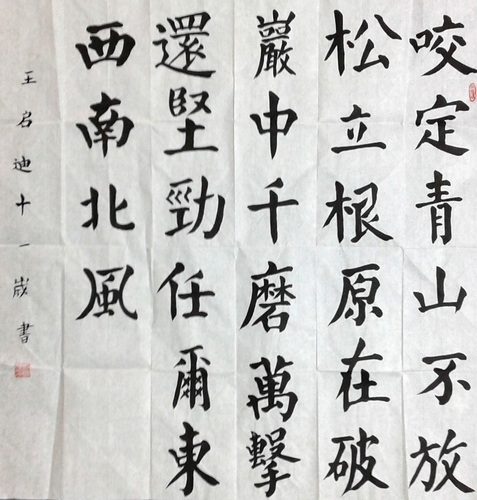 咬定青山不放
松立根原在破
巖中千磨萬擊
還堅勁任爾東
西南北風
王启迪十一歲書